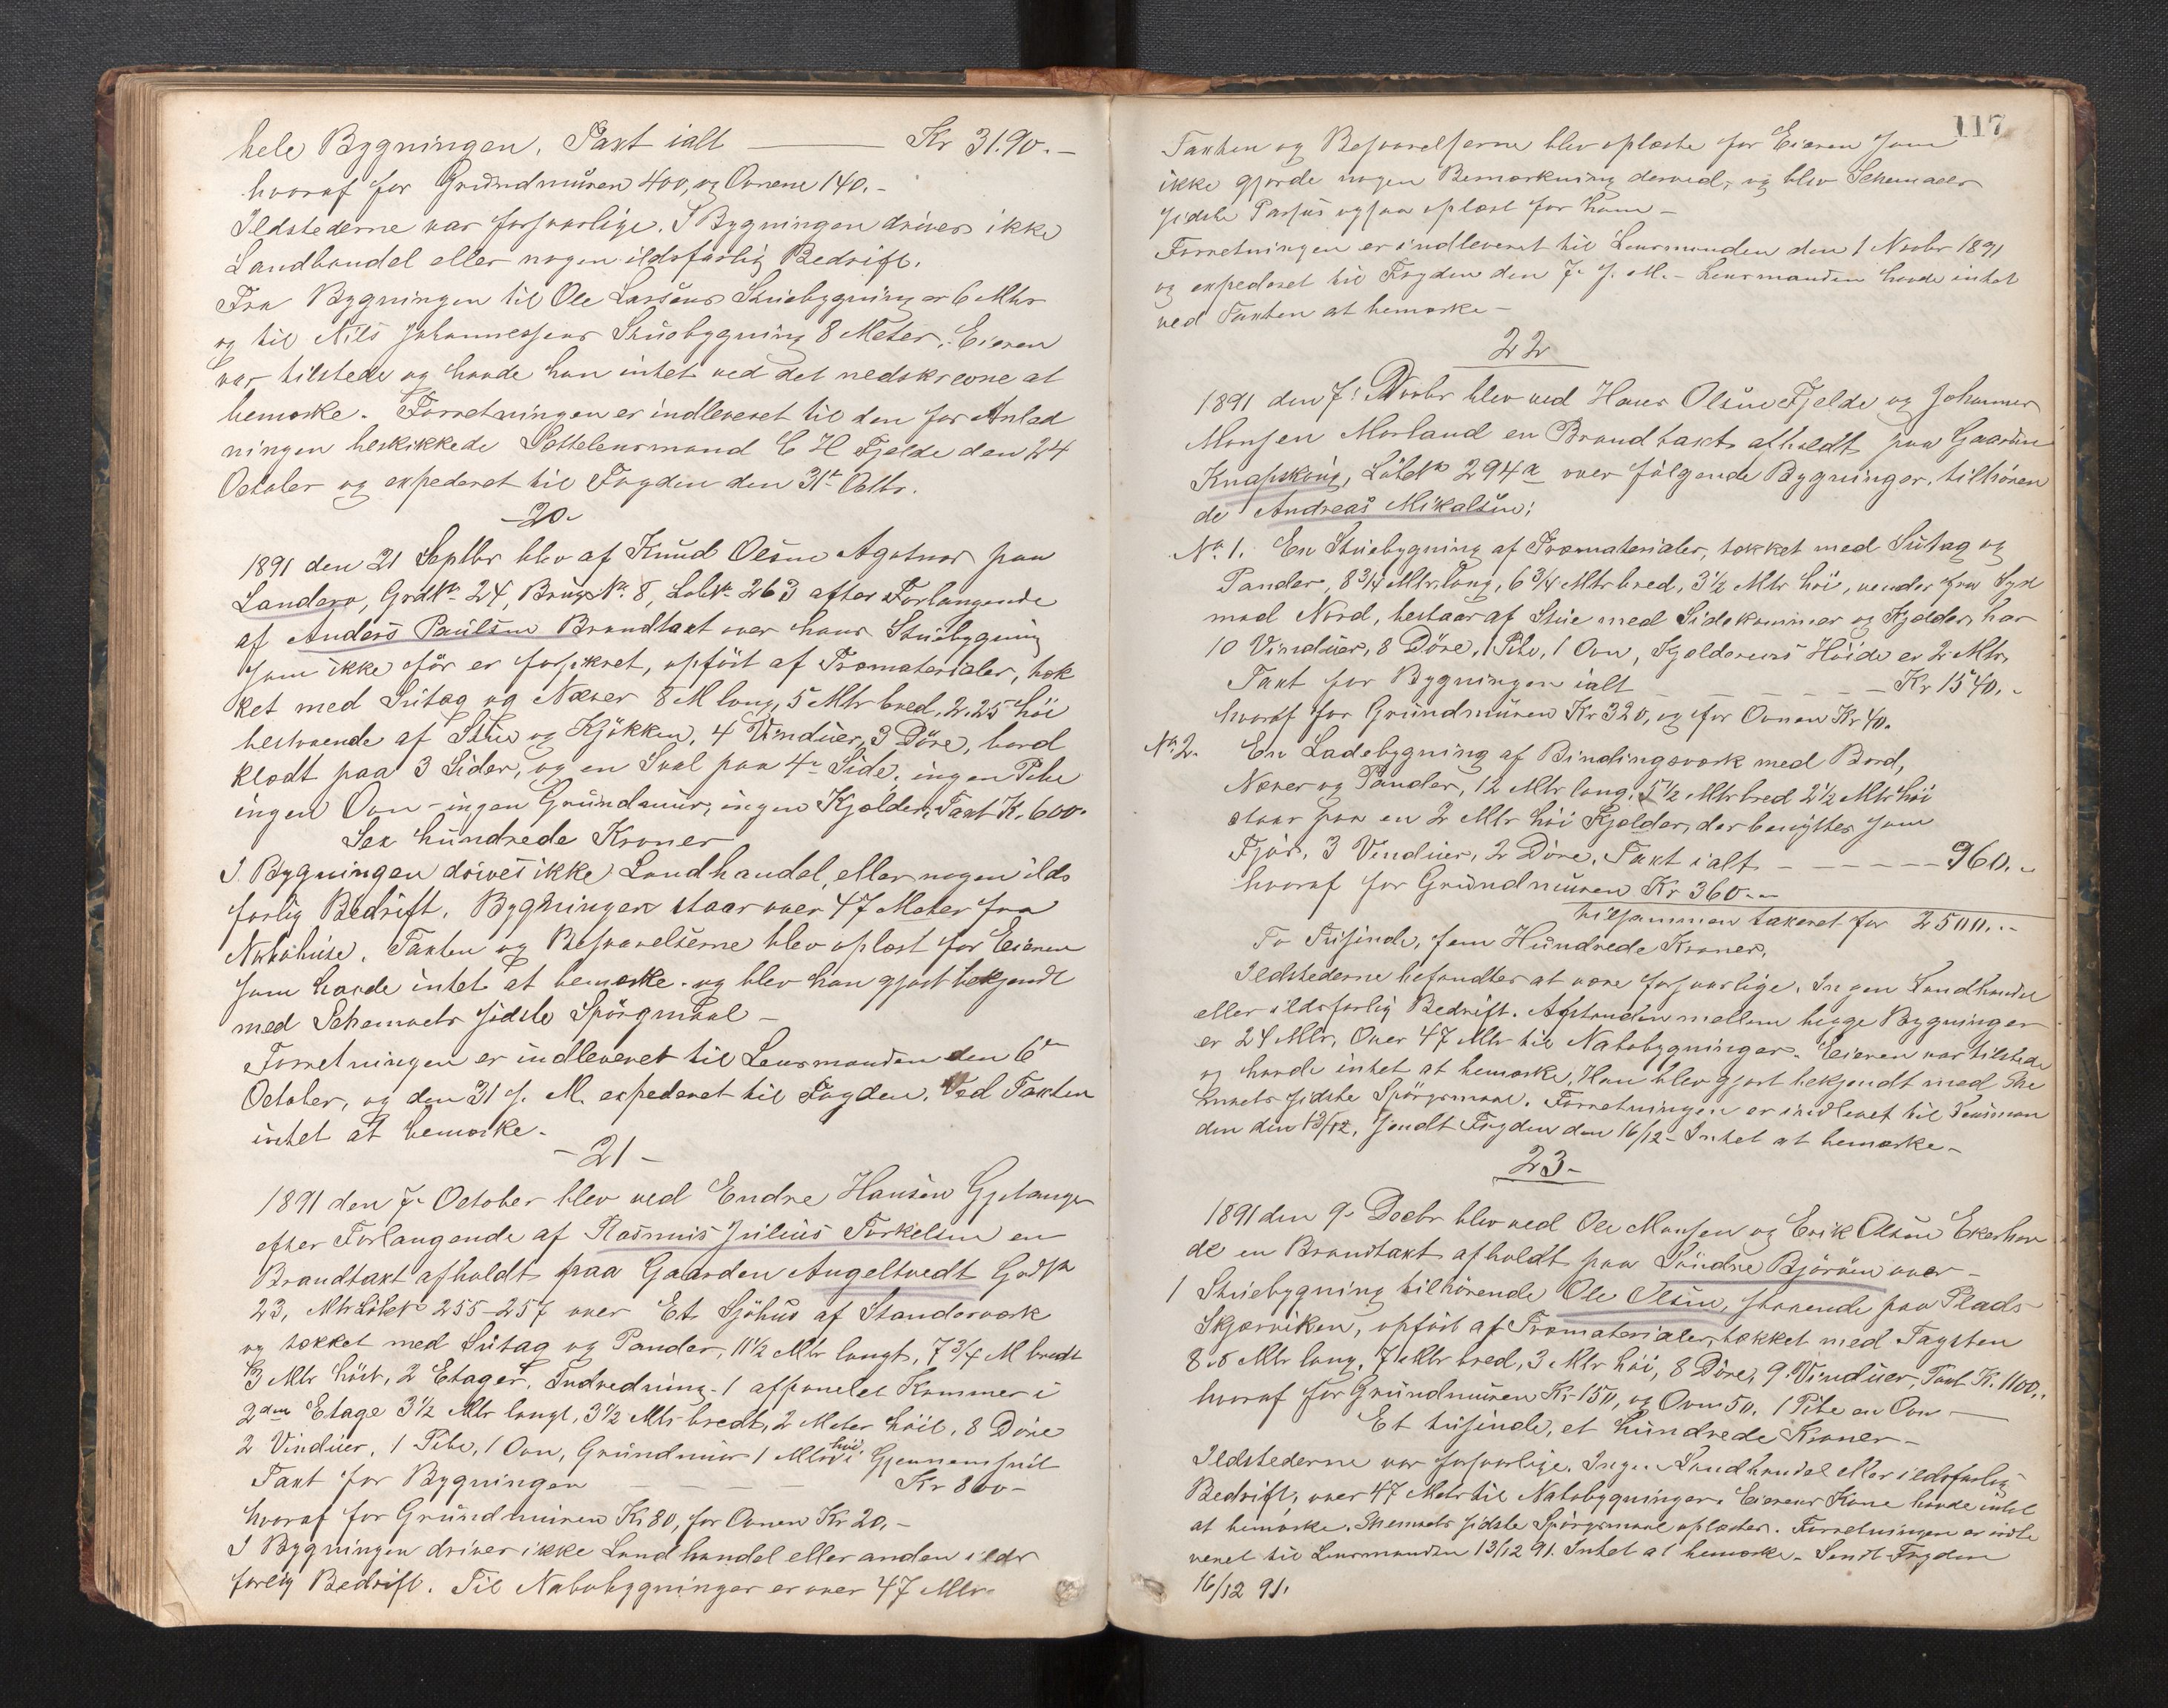 hele Bygningen, Taxt ialt ——— Kr 3190.-
hvoraf for Grundmuren 400, og Ovnene 140.-
Ildstederne var forsvarlige. I Bygningen drives ikke
Landhandel eller nogen ildsfarlig Bedrift.
Fra Bygningen til Ole Larsens Stuebygning er 6 Mtr
og til Nils Johannessens Stuebygning 8 Meter. Eieren
var tilstede og havde han intet ved det nedskrevne at
bemærke. Forretningen er indleveret til den for Anled
ningen beskikkede Settelensmand C H Fjelde den 24
October og expederet til Fogden den 31te Octbr.
-20-
1891 den 21 Septbr blev af Knud Olsen Agotnes paa
Landero, Grd No 24, Brugs No 8, Lob No 263 efter Forlangende
af Anders Paulsen Brandtaxt over hans Stuebygning
som ikke før er forsikret, opført af Træmaterialer, tæk
ket med Sutag og Næver 8 M lang, 5 Mtr bred, 2.25 høi
bestaaende af Stue og Kjøkken, 4 Vinduer, 3 Døre, bord
klædt paa 3 Sider, og en Sval paa 4de Side, ingen Pibe
ingen Ovn - ingen Grundmur, ingen Kjelder, Taxt K. 600.
Sex hundrede Kroner
I Bygningen drives ikke Landhandel, eller nogen ilds
farlig Bedrift. Bygningen staar over 47 Meter fra
Nabohuse. Taxten og Besvarelserne blev oplæst for Eieren
som havde intet at bemærke. og blev han gjort bekjendt
med Schemaets sidste Spørgmaal -
Forretningen er indleveret til Lensmanden den 6te
October, og den 31 s. M. expederet til Fogden. Ved Taxten
intet at bemærke.
- 21 -
1891 den 7de October blev ved Endre Hansen Gjetanger
efter Forlangende af Rasmus Julius Torkelsen en
Brandtaxt afholdt paa Gaarden Angeltvedt Grd No
23, Mtr Løbe No 255-257 over Et Sjøhus af Standerværk
og tækket med Sutag og Pander, 11½ Mtr langt, 7¾ M bredt
3 Mtr høit, 2 Etager. Indredning. 1 afpanelet Kammer i
2den Etage 3½ Mtr langt, 3½ Mtr bredt, 2 Meter høit, 8 Døre
2 Vinduer, 1 Pibe, 1 Ovn, Grundmur 1 Mtr høi Gjennemsnit
Taxt for Bygningen - - - - Kr 800-
hvoraf for Grundmuren Kr 80, for Ovnen Kr 20.-
I Bygningen drives ikke Landhandel eller anden ilds
farlig Bedrift. Til Nabobygninger er over 47 Mtr.
117
Taxten og Besvarelserne blev oplæste for Eieren som
ikke gjorde nogen Bemærkning derved, og blev Schemaets
sidste Passus ogsaa oplæst for ham -
Forretningen er indleveret til Lensmanden den 1 Novbr 1891
og expederet til Fogden den 7de s. M. - Lensmanden havde intet
ved Taxten at bemærke -
22
1891 den 7de Novbr blev ved Hans Olsen Fjelde og Johannes
Monsen Morland en Brandtaxt afholdt paa Gaarden
Knapskoug, Løbe No 294a over følgende Bygninger, tilhøren
de Andreas Mikalsen:
No 1. En Stuebygning af Træmaterialer, tækket med Sutag og
Pander, 8¾ Mtr lang, 6¾ Mtr bred, 3½ Mtr høi, vender fra Syd
mod Nord, bestaar af Stue med Sidekammer og Kjelder, har
10 Vinduer, 8 Døre, 1 Pibe, 1 Ovn, Kjelderens Høide er 2 Mtr,
Taxt for Bygningen ialt - - - - - - Kr 1540.-
hvoraf for Grundmuren Kr 320, og for Ovnen Kr 40.
No 2. En Ladebygning af Bindingsværk med Bord,
Næver og Pander, 12 Mtr lang, 5½ Mtr bred 2½ Mtr høi
staar paa en 2 Mtr høi Kjelder, der benyttes som
Fjøs, 3 Vinduer, 2 Døre, Taxt ialt - - - - - 960.-
hvoraf for Grundmuren Kr 360.-
tilsammen taxeret for 2500.-
To Tusinde, fem Hundrede Kroner.
Ildstederne befandtes at være forsvarlige. Ingen Landhandel
eller ildsfarlig Bedrift. Afstanden mellem begge Bygninger
er 24 Mtr, Over 47 Mtr til Nabobygninger. Eieren var tilstede
og havde intet at bemærke. Han blev gjort bekjendt med Ske
maets sidste Spørgsmaal. Forretningen er indlevet til Lensman
den den 13/12, sendt Fogden den 16/12 - Intet at bemærke -
23-
1891 den 9de Decbr blev ved Ole Monsen og Erik Olsen Ekerhov
de en Brandtaxt afholdt paa Søndre Bjørøen over -
1 Stuebygning tilhørende Ole Olsen, staaende paa Plads
Skjærviken, opført af Træmaterialer, tækket med Tagsten
8.5 Mtr lang, 7 Mtr bred, 3 Mtr høi, 8 Døre, 9 Vinduer, Taxt K. 1100.
hvoraf for Grundmuren Kr 150, og Ovn 50. 1 Pibe en Ovn —
Et tusinde, et hundrede Kroner -
Ildstederne var forsvarlige. Ingen Landhandel eller ildsfarlig
Bedrift, over 47 Meter til Nabobygninger. Eierens Kone havde intet
at bemærke. Skemaets sidste Spørgsmaal oplæstes. Forretningen er indle
veret til Lensmanden 13/12 91. Intet at bemærke - Sendt Fogden
16/12 91.